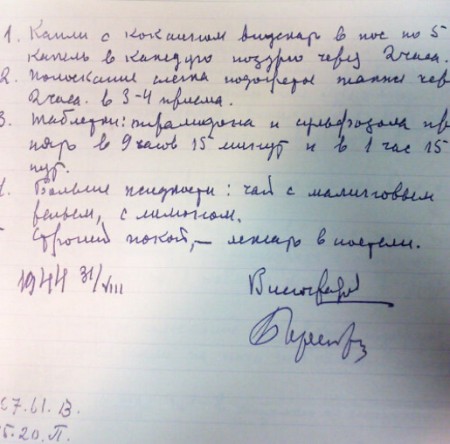 1. Капли с кокаином впускать в нос по 5
капель в каждую ноздрю через 2 часа.
2. Полоскание слегка подогретое также чер
2 часа. в 3-4 приема.
3. Таблетки: пирамидона и сульфазола пр
нять в 9 часов 15 минут и в 1 час 15
4. Больше жидкости: чай с малиновым
с лимоном.
Строгий покой, – лежать в постели.
1944 31/VIII
Виноградов
67.61. В.
5-20. П.